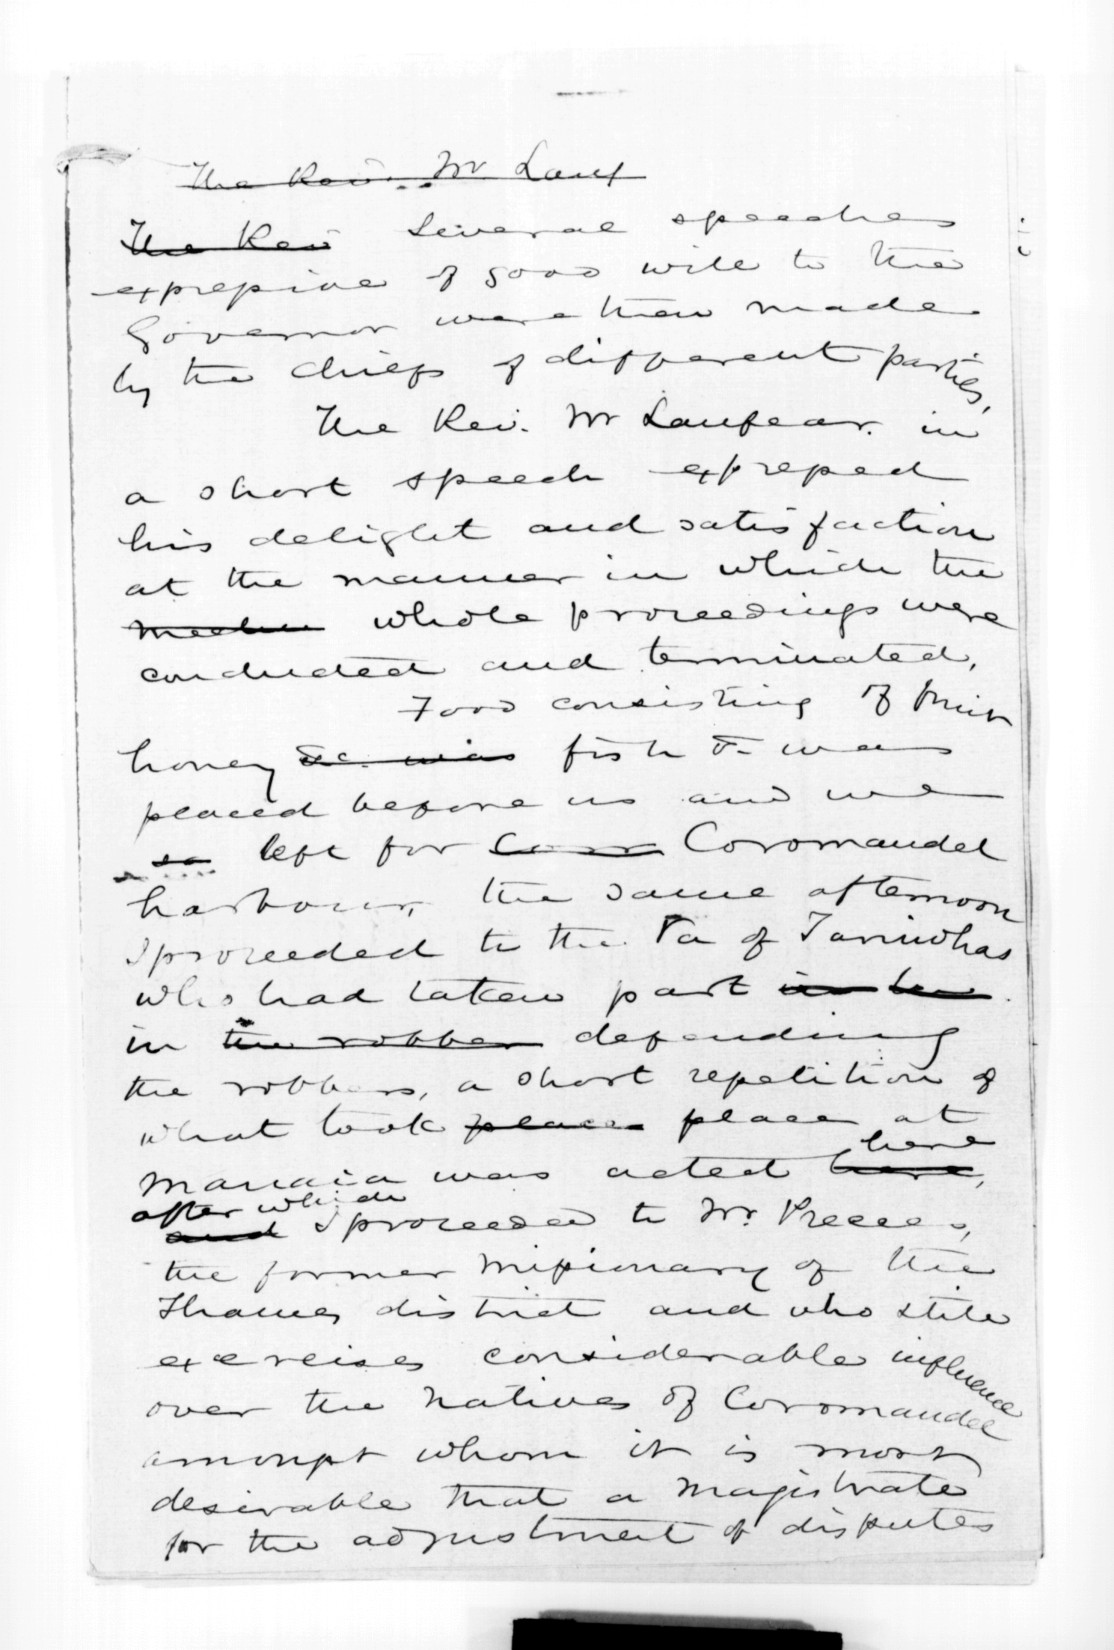 The Rev. Mr Lanf
The Rev Several speeches
expressive of good will to the
Governor were then made
by the chiefs of different parties,
The Rev. Mr Lanfear. in
a short speech expressed
his delight and satisfaction
at the manner in which the
meetin whole proceedings were
conducted and terminated.
Food consisting of
honey &c. was fish &c was
placed before us and we
so left for Coro Coromandel
harbour, the same afternoon
I proceeded to the Pa of Taniwhas
who had taken part in the
in the robber defending
the robbers, a short repetition of
what took place place at
Manaia was acted here here,
after which
and I proceeded to Mr. Preece,
the former Missionary of the
Thames district and who still
exercises considerable influence
over the Natives of Coromandel
amongst whom it is most
desirable that a Magistrate
for the adjustment of disputes